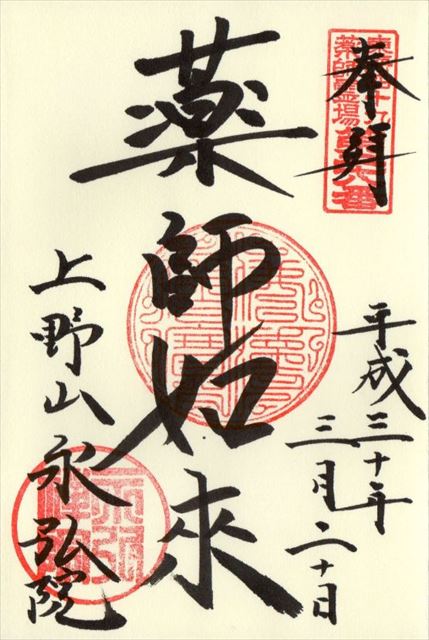 奉拝
薬師如來
平成三十年
三月二十日
上野山永弘院